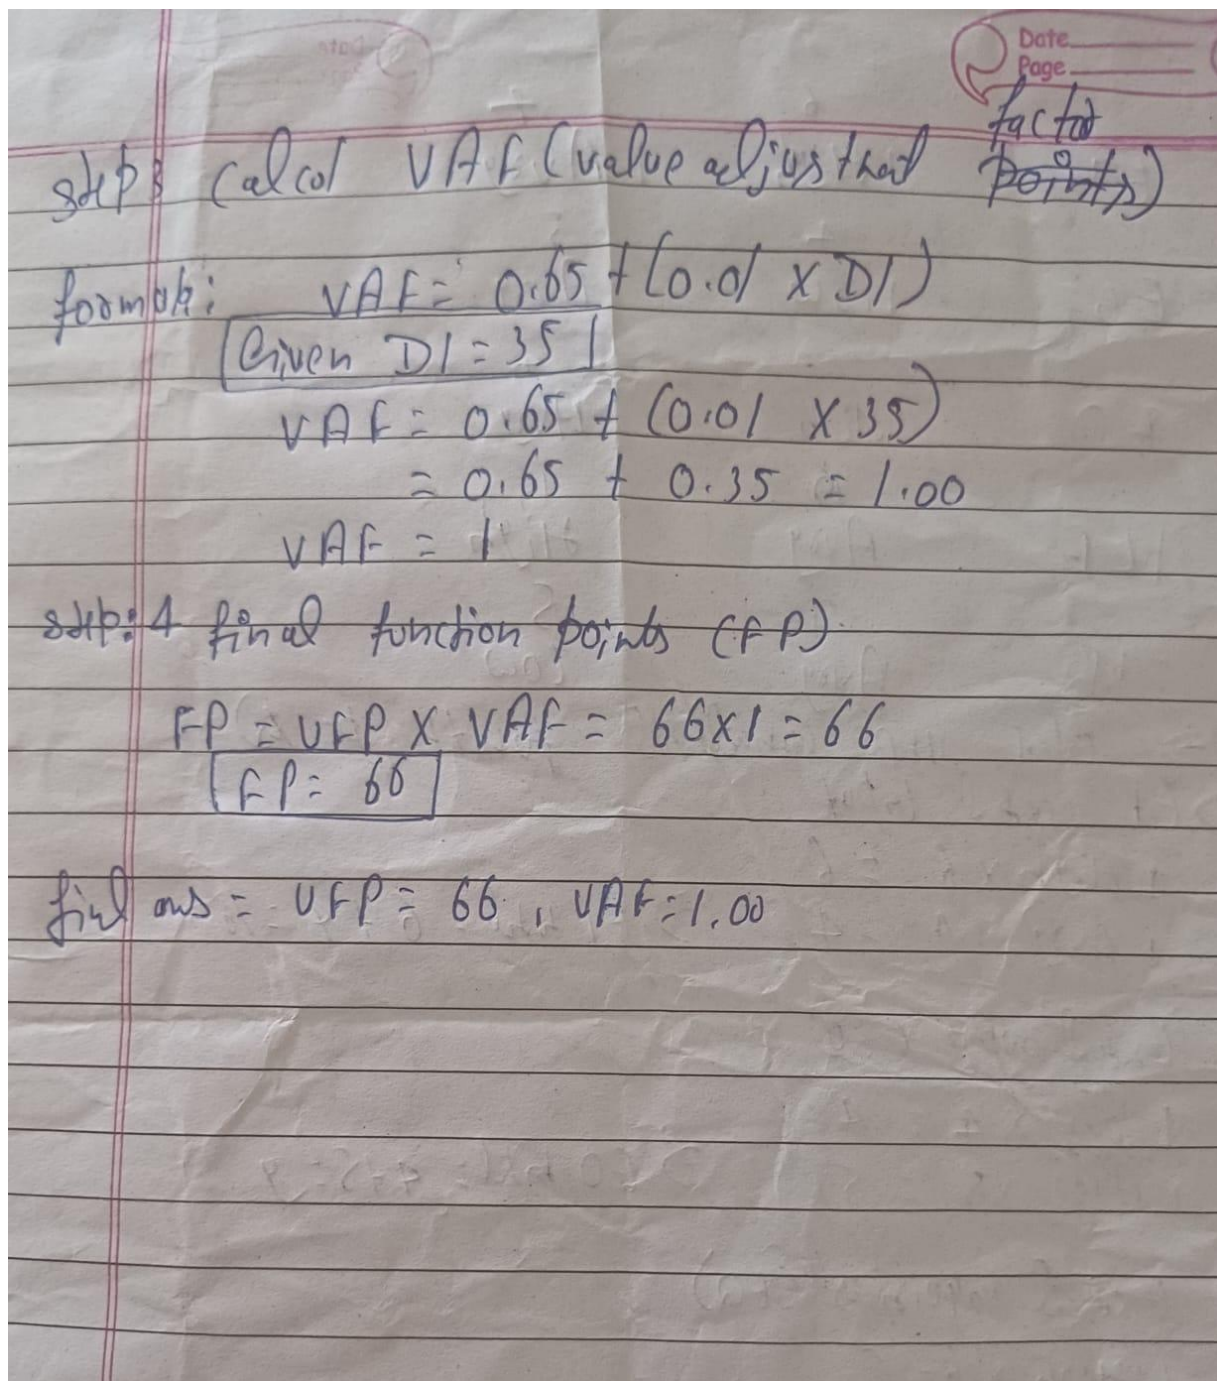 Date
Page
step: Calcol VAF (value adjusthed factor points)
formula: VAF = 0.65 + (0.01 X DI)
Given DI = 35
VAF = 0.65 + (0.01 X 35)
= 0.65 + 0.35 = 1.00
VAF = 1
step: 4 final function points (FP)
FP = UFP X VAF = 66x1 = 66
FP = 66
final ans = UFP = 66, VAF = 1.00